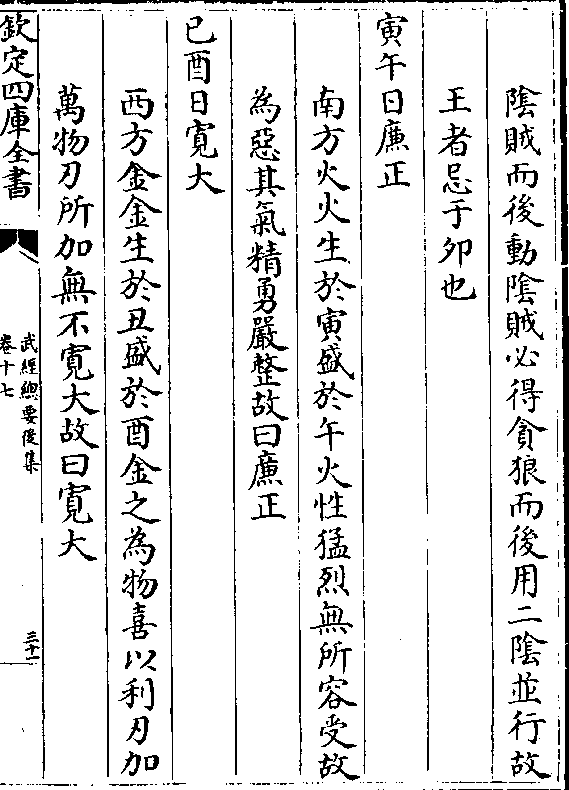 隂賊而後動隂賊必得貪狼而後用二隂並行故
王者忌于夘也
寅午日廉正
南方火火生於寅盛於午火性猛烈無所容受故
為惡其氣精勇嚴整故曰廉正
已酉日寛大
西方金金生於丑盛於酉金之為物喜以利刃加
萬物刃所加無不寛大故曰寛大
欽定四庫全書
武經總要後集
卷十七
三十一